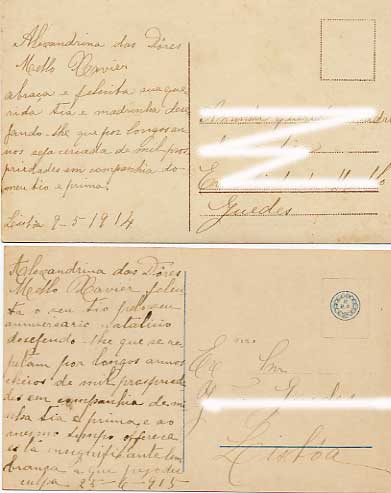 Alexandrina das Dôres
Mello Xavier
abraça e felicita sua que
rida tia e madrinha dese
jando-lhe que por longos an
nos seja cercada de mil pros
peridades em companhia do
meu tio e prima.
Lisbôa 9-5-1914
Guedes
Alexandrina das Dôres
Mello Xavier felici
ta o seu tio pelo seu
anniversario natalicio
desejando-lhe que se re
pitam por longos annos
cheios de mil prosperida
des em companhia de mi
nha tia e prima, e ao
mesmo tempo offerece
esta insignificante lem
brança a que pede des
culpa 25-6-915
Ex mo Snr.
Guedes
Lisbôa